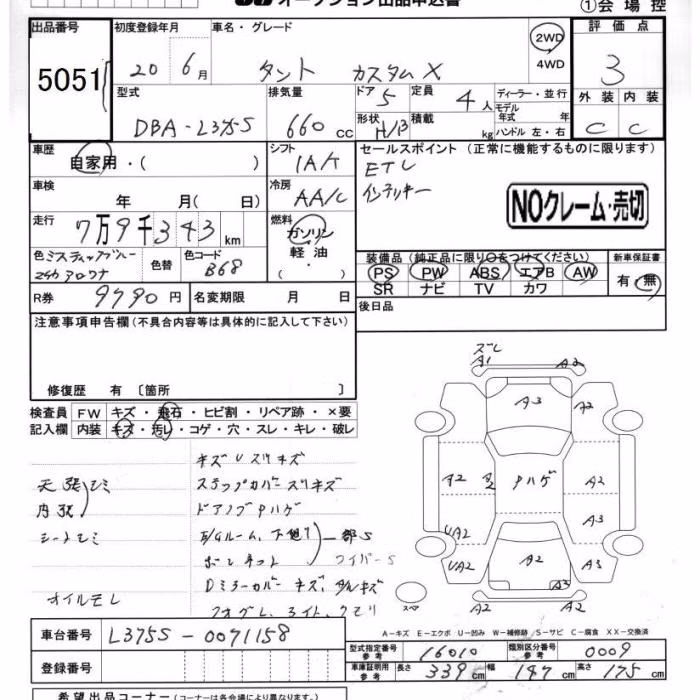 オークション出品申込書
①会場控
出品番号 初度登録年月 車名・グレード 2WD 評価点
5051 20 6月 タント カスタムX 4WD 3
型式 排気量 ドア 定員 ディーラー・並行 外装 内装
DBA-L375S 660cc 5 4人 モデル年式 年 C C
形状 H/B 積載 kg ハンドル 左・右
車歴 シフト セールスポイント (正常に機能するものに限ります)
自家用・( ) IA/T ETC
車検 冷房 インテリキー
年 月( 日) AA/C NOクレーム・売切
走行 燃料
7万9千343km ガソリン
軽油
・( )
色 ミスティックブルー 色替 色コード 装備品 (純正品に限り○をつけてください) 新車保証書
B68 PS PW ABS エアB AW 有・無
SR ナビ TV カワ
R券 9790円 名変期限 月 日 後日品
注意事項申告欄(不具合内容等は具体的に記入して下さい)
修復歴 有〔箇所 〕
検査員 FW キズ・飛石・ヒビ割・リペア跡・×要
記入欄 内装 キズ・汚レ・コゲ・穴・スレ・キレ・破レ
キズUスリキズ
天張シミ ステップカバースリキズ
内張 ドアノブPハゲ
シートシミ E/Gルーム、下廻り 一部S
ボンネット ワイパーS
Dミラーカバーキズ、
オイルモレ フォグL、ライト、クモリ
ズレ
A1 A2
A3 A2
A2 A2 Pハゲ A2
A3
UA2
UA2 A2 A3
A3
スペア A2 A2
A-キズ E-エクボ U-凹み W-補修跡/S-サビ C-腐食 XX-交換済
車台番号 L375S-0071158 型式指定番号 参考 16010 類別区分番号 参考 0009
登録番号 車庫証明用 参考 長さ 339cm 幅 147cm 高さ 175cm
希望出品コーナー(コーナーは各会場により異なります。)